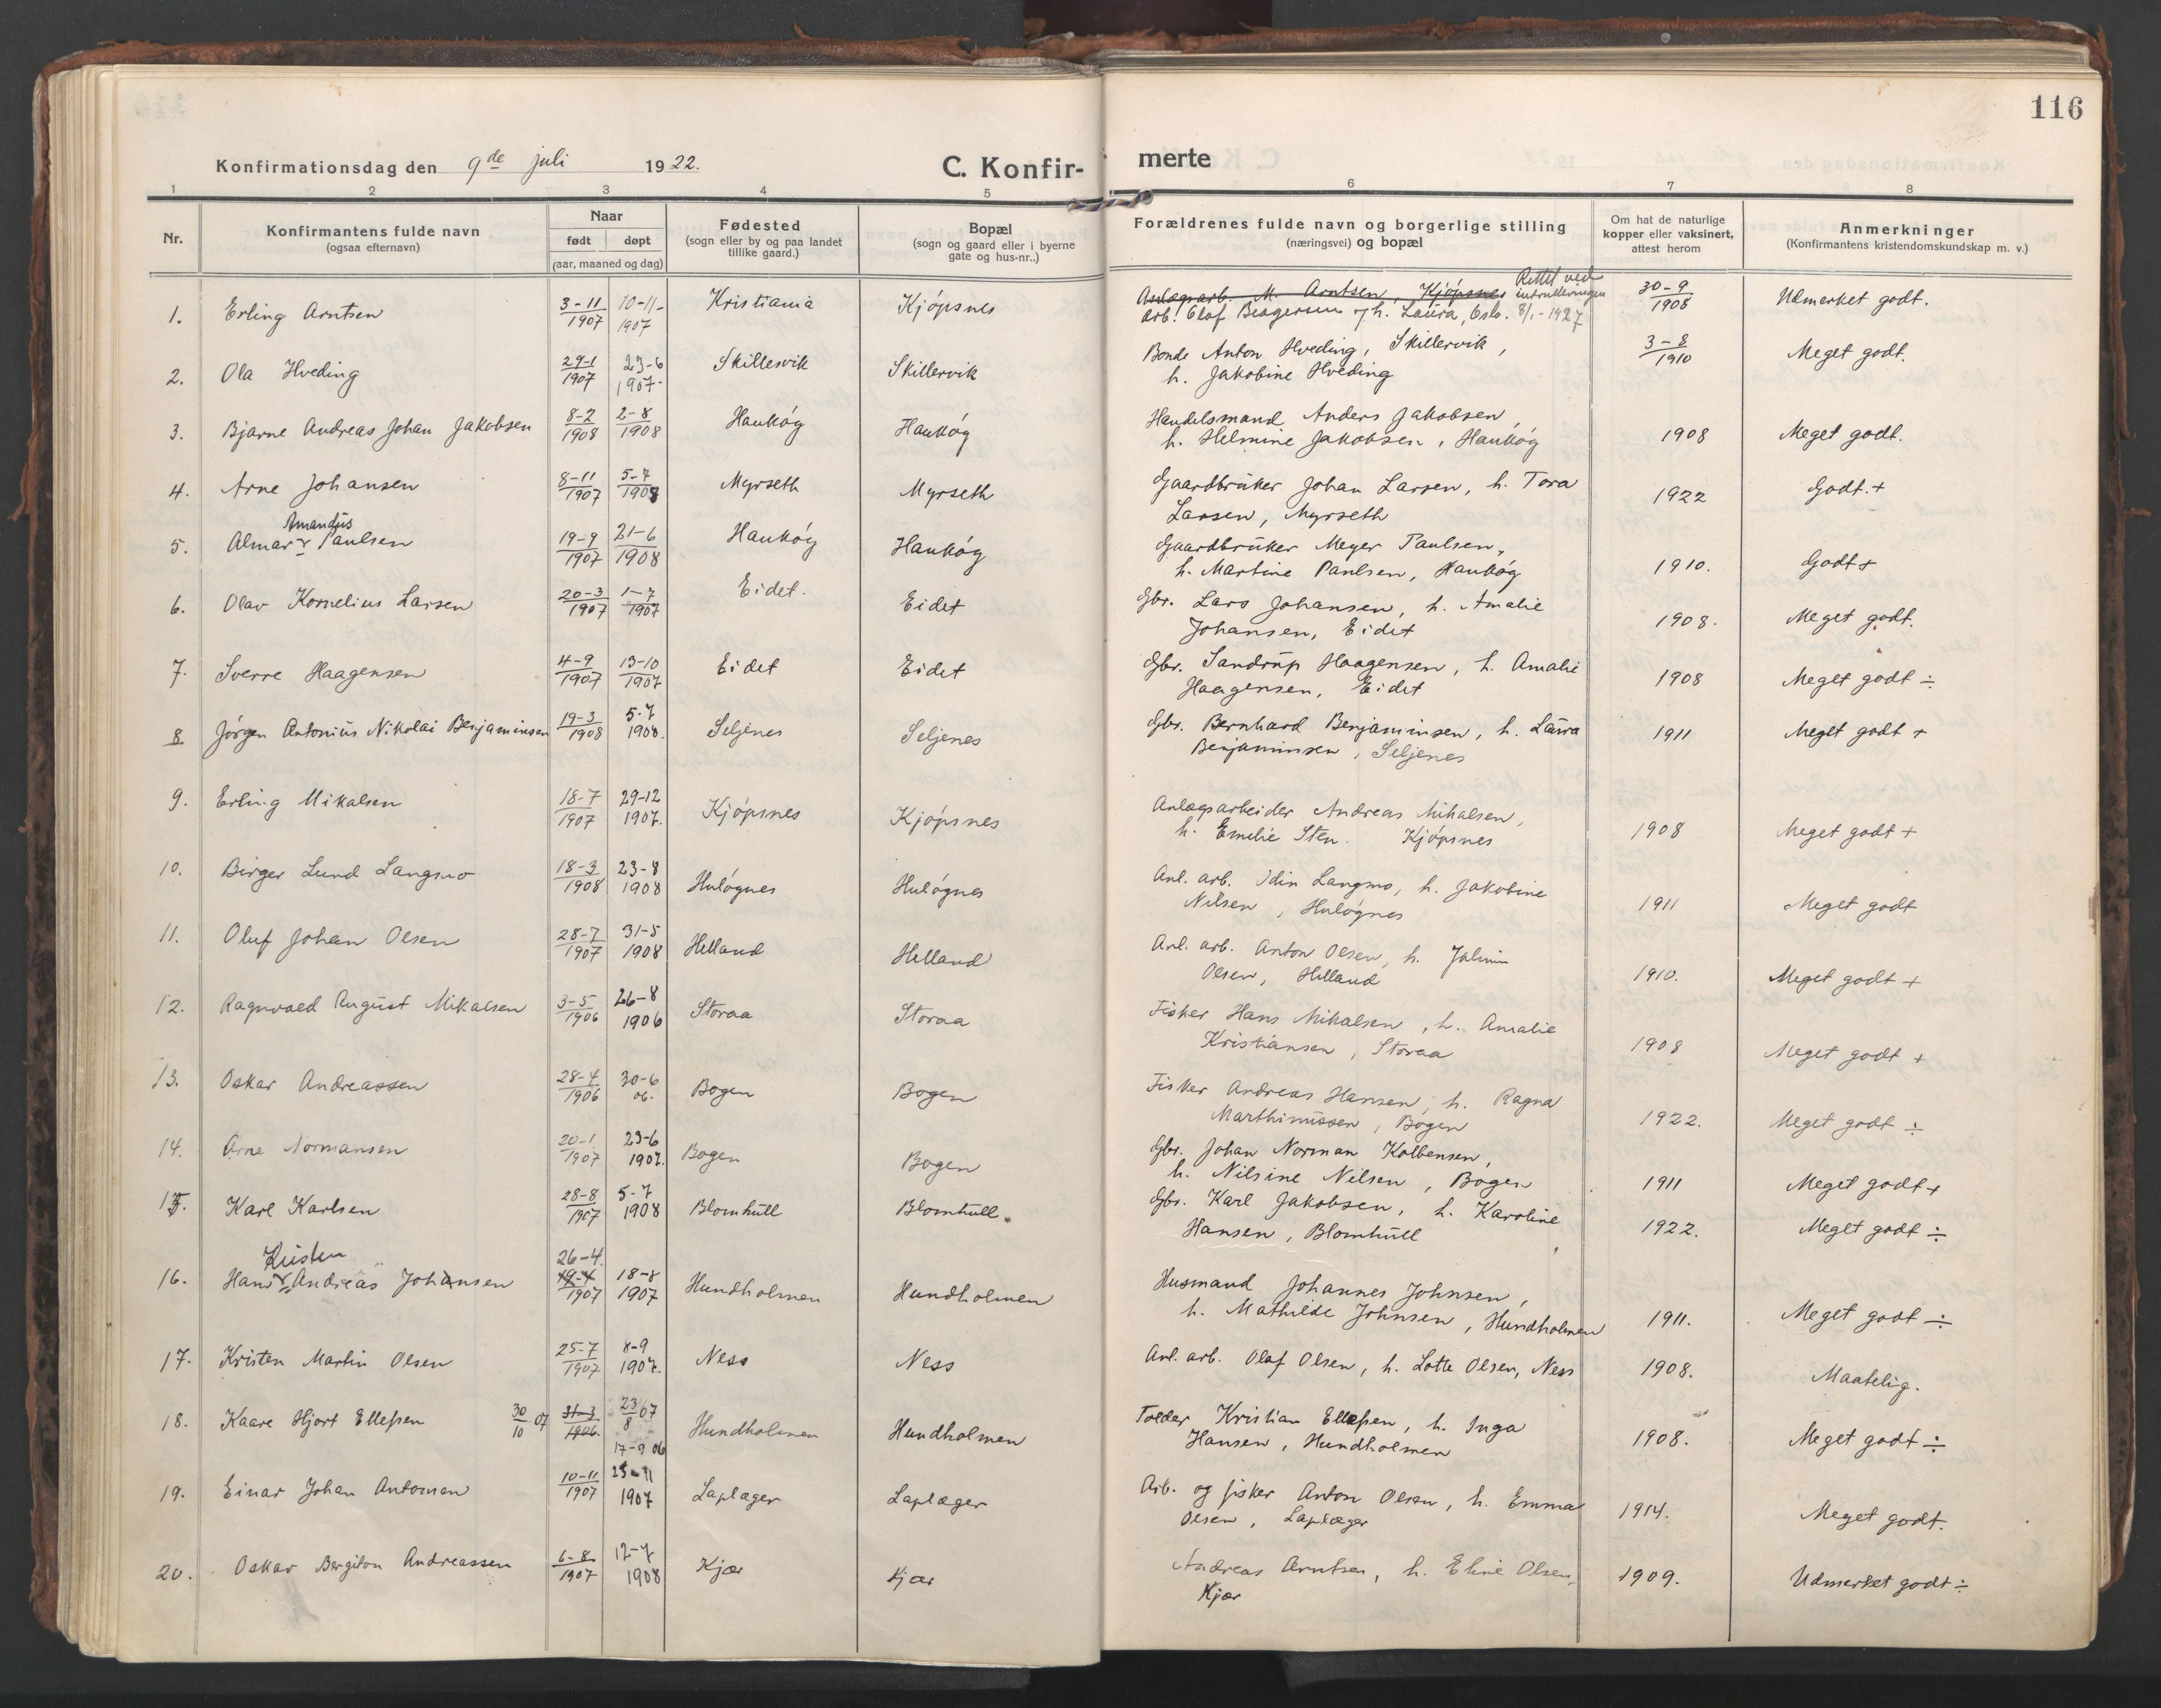 116
Konfirmationsdag den 9de juli 1922. C. Konfir- merte
1 2 3 4 5 6 7 8
Nr.
Konfirmantens fulde navn
(ogsaa efternavn)
Naar
født døpt
(aar, maaned og dag)
Fødested
(sogn eller by og paa landet
tillike gaard.)
Bopæl
(sogn og gaard eller i byerne
gate og hus-nr..)
Forældrenes fulde navn og borgerlige stilling
(næringsvei) og bopæl
Om hat de naturlige
kopper eller vaksinert,
attest herom
Anmerkninger
(Konfirmantens kristendomskundskap m. v.)
1. Erling Arntsen 3-11 1907 10-11- 1907 Kristiania Kjøpsnes Anlægsarb. M. Arntsen, Kjøpsnes Rettet ved 30-9 1908 Udmerket godt.
arb. Olaf h. Laura, Oslo. 8/1-1927
2. Ola Hveding 29-1 1907 23-6 1907. Skillesvik Skillervik Bonde Anton Hveding, Skillervik, 3-8 1910 Meget godt.
h. Jakobine Hveding
3. Bjarne Andreas Johan Jakobsen 8-2 1908 2-8 1908 Haukøy Haukøy Handelsmand Anders Jakobsen, 1908 Meget godt.
h. Helmine Jakobsen, Haukøy
4. Arne Johansen 8-11 1907 5-7 1908 Myrseth Myrseth Gaardbruker Johan Larsen, h. Tora 1922 Godt.+
Larsen, Myrseth
5. Almar Amandus Paulsen 19-9 1907 21-6 1908 Haukøy Haukøy Gaardbruker Meyer Paulsen, 1910. Godt+
h. Martine Paulsen, Haukøy
6. Olav Kornelius Larsen 20-3 1907 1-7 1907 Eidet. Eidet Gbr. Lars Johansen, h. Amalie 1908. Meget godt.
Johansen, Eidet
7. Sverre Haagensen 4-9 1907 13-10 1907 Eidet Eidet Gbr. Sandrup Haagensen, h. Amalie 1908 Meget godt ÷
Haagensen, Eidet
8 Jørgen Antonius Nikolai Benjaminsen 19-3 1908 5-7 1908. Seljenes Seljenes Gbr. Bernhard Benjaminsen, h. Laura 1911 Meget godt +
Benjaminsen, Seljenes
9. Erling Mikalsen 18-7 1907 29-12 1907. Kjøpsnes Kjøpsnes Anlægsarbeider Andreas Mikalsen, 1908 Meget godt +
h. Emelie Sten. Kjøpsnes
10. Birger Lund Langmo 18-3 1908 23-8 1908 Huløynes Huløynes Anl. arb. Odin Langmo, h. Jakobine 1911 Meget godt
Nilsen, Huløynes
11. Oluf Johan Olsen 28-7 1907 31-5 1908 Helland Helland Anl. arb. Anton Olsen, h. 1910. Meget godt +
Olsen, Helland
12. Ragnvald August Mikalsen 3-5 1906 26-8 1906 Storaa Storaa Fisker Hans Mikalsen, h. Amalie 1908 Meget godt +
Kristiansen, Storaa
13. Oskar Andreassen 28-4 1906 30-6 06. Bogen Bogen Fisker Andreas Hansen, h. Ragna 1922. Meget godt ÷
Marthinussen, Bogen
14. Arne Normansen 20-1 1907 23-6 1907. Bogen Bogen Gbr. Johan Norman Kolbensen, 1911 Meget godt+
h. Nilsine Nilsen, Bogen
15. Karl Karlsen 28-8 1907 5-7 1908 Blomhull Blomhull. Gbr. Karl Jakobsen, h. Karoline 1922. Meget godt ÷
Hansen, Blomhull
16. Hans Kristen Andreas Johansen 26-4. 19-4 1907 18-8 1907 Hundholmen Hundholmen Husmand Johannes Johnsen, 1911. Meget godt ÷
h. Mathilde Johnsen, Hundholmen
17. Kristen Martin Olsen 25-7 1907 8-9 1907. Ness Ness Anl. arb. Olaf Olsen, h. Lotte Olsen, Ness 1908. Maatelig.
18. Kaare Hjort Ellefsen 30/10 07 31-3 1906. 23/8 07 17-9 06 Hundholmen Hundholmen Tolder Kristian Ellefsen, h. Inga 1908. Meget godt ÷
Hansen, Hundholmen
19. Einar Johan Antonsen 10-11 1907 25-11 1907 Laplæger Laplæger Arb. og fisker Anton Olsen, h. Emma 1914. Meget godt.
Olsen, Laplæger
20. Oskar Bergiton Andreassen 6-8 1907 12-7 1908 Kjær Kjær Andreas Arntsen, h. Eline Olsen, 1909. Udmerket godt ÷
Kjær